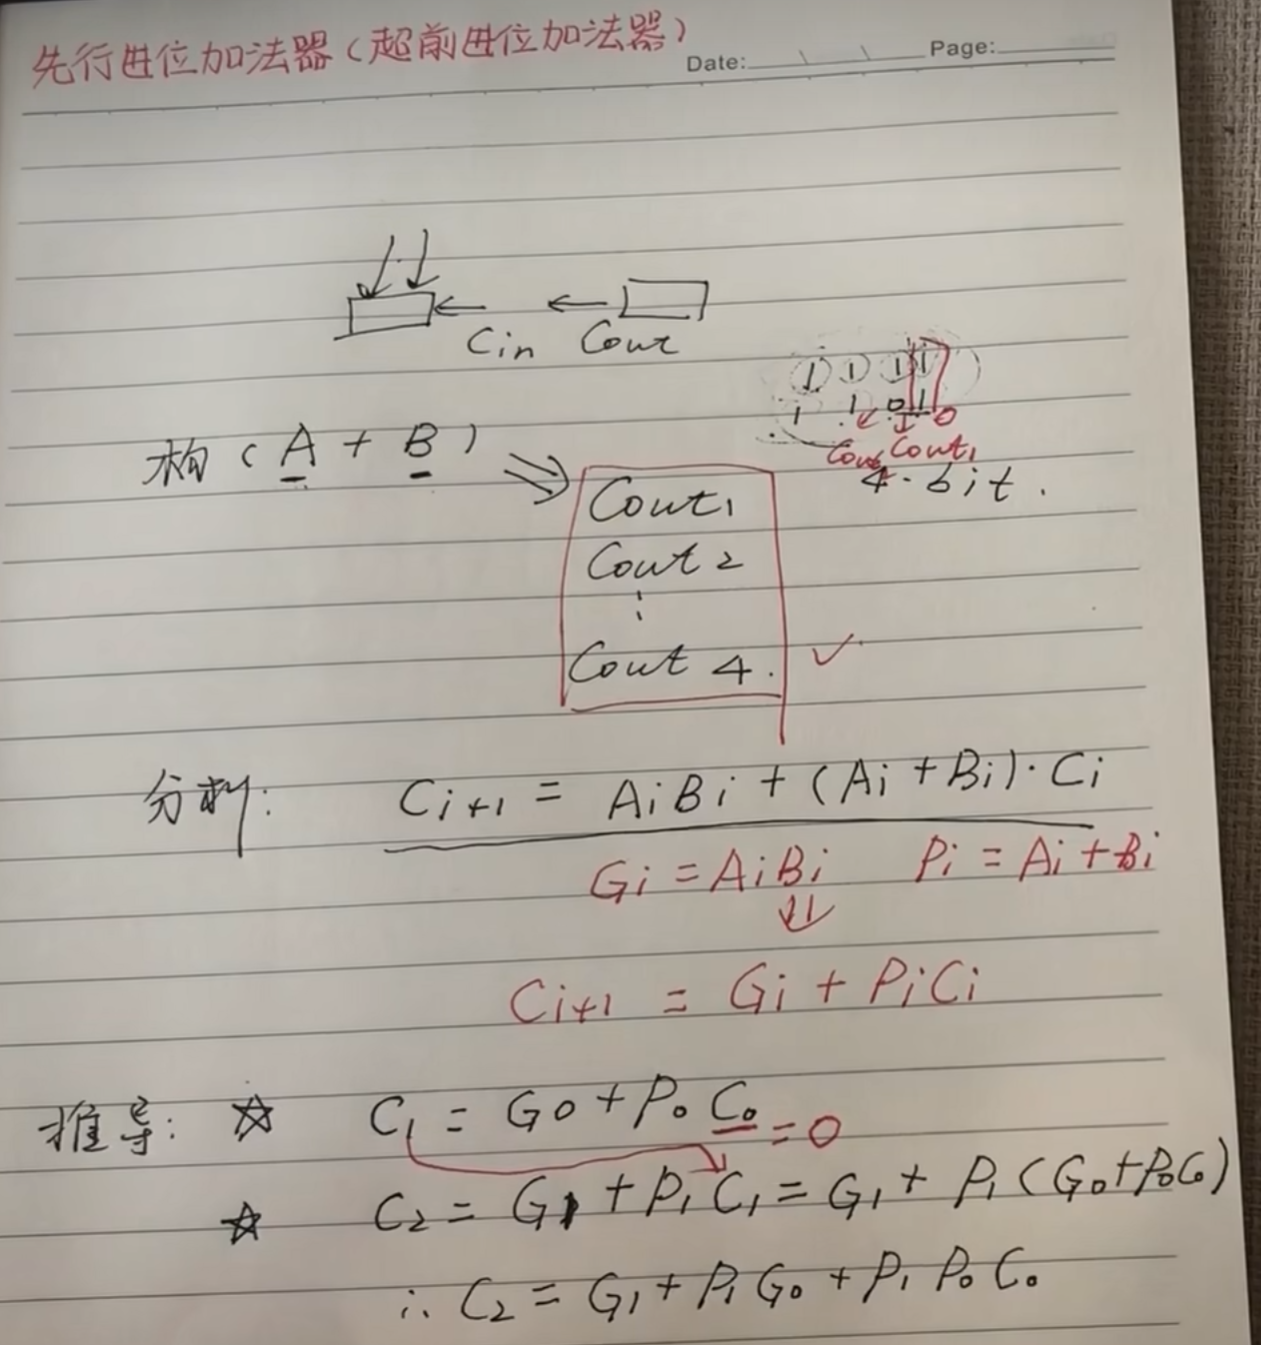 先行进位加法器(超前进位加法器)
Date: Page:
Cin Cout
1 1 1 1
1 1 0 1 0
Cout Cout1
4·bit.
构(A + B) ⇒ Cout1
Cout 2
⋮
Cout 4. ✓
分析: Ci+1 = AiBi + (Ai + Bi)·Ci
Gi = AiBi Pi = Ai + Bi
⇓
Ci+1 = Gi + PiCi
推导: ☆ C1 = G0 + P0 C0 = 0
☆ C2 = G1 + P1 C1 = G1 + P1 (G0+P0C0)
∴ C2 = G1 + P1 G0 + P1 P0 C0